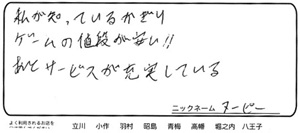 私が知っているかぎり
ゲームの値段が安い!!
あとサービスが充実している
ニックネーム ヌービー
よく利用されるお店を
立川 小作 羽村 昭島 青梅 高幡 堀之内 八王子